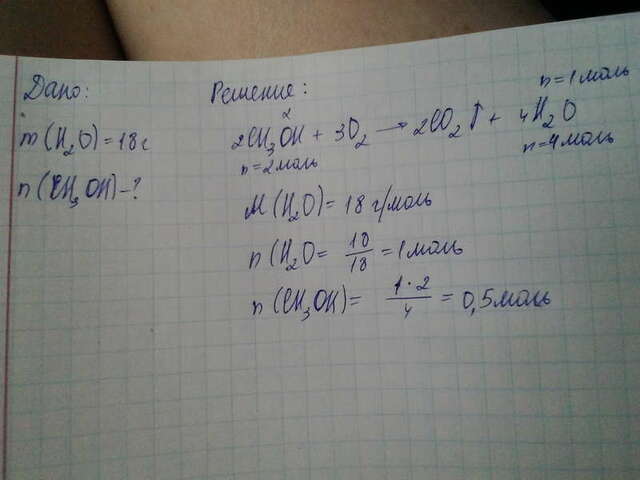 Дано:
m(H₂O)=18г
n(CH₃OH)-?
Решение:
n=1моль
x
2CH₃OH + 3O₂ → 2CO₂↑ + 4H₂O
n=2моль
n=4моль
M(H₂O)= 18 г/моль
n(H₂O= 18/18 = 1моль
n(CH₃OH)= 1·2/4 = 0,5моль